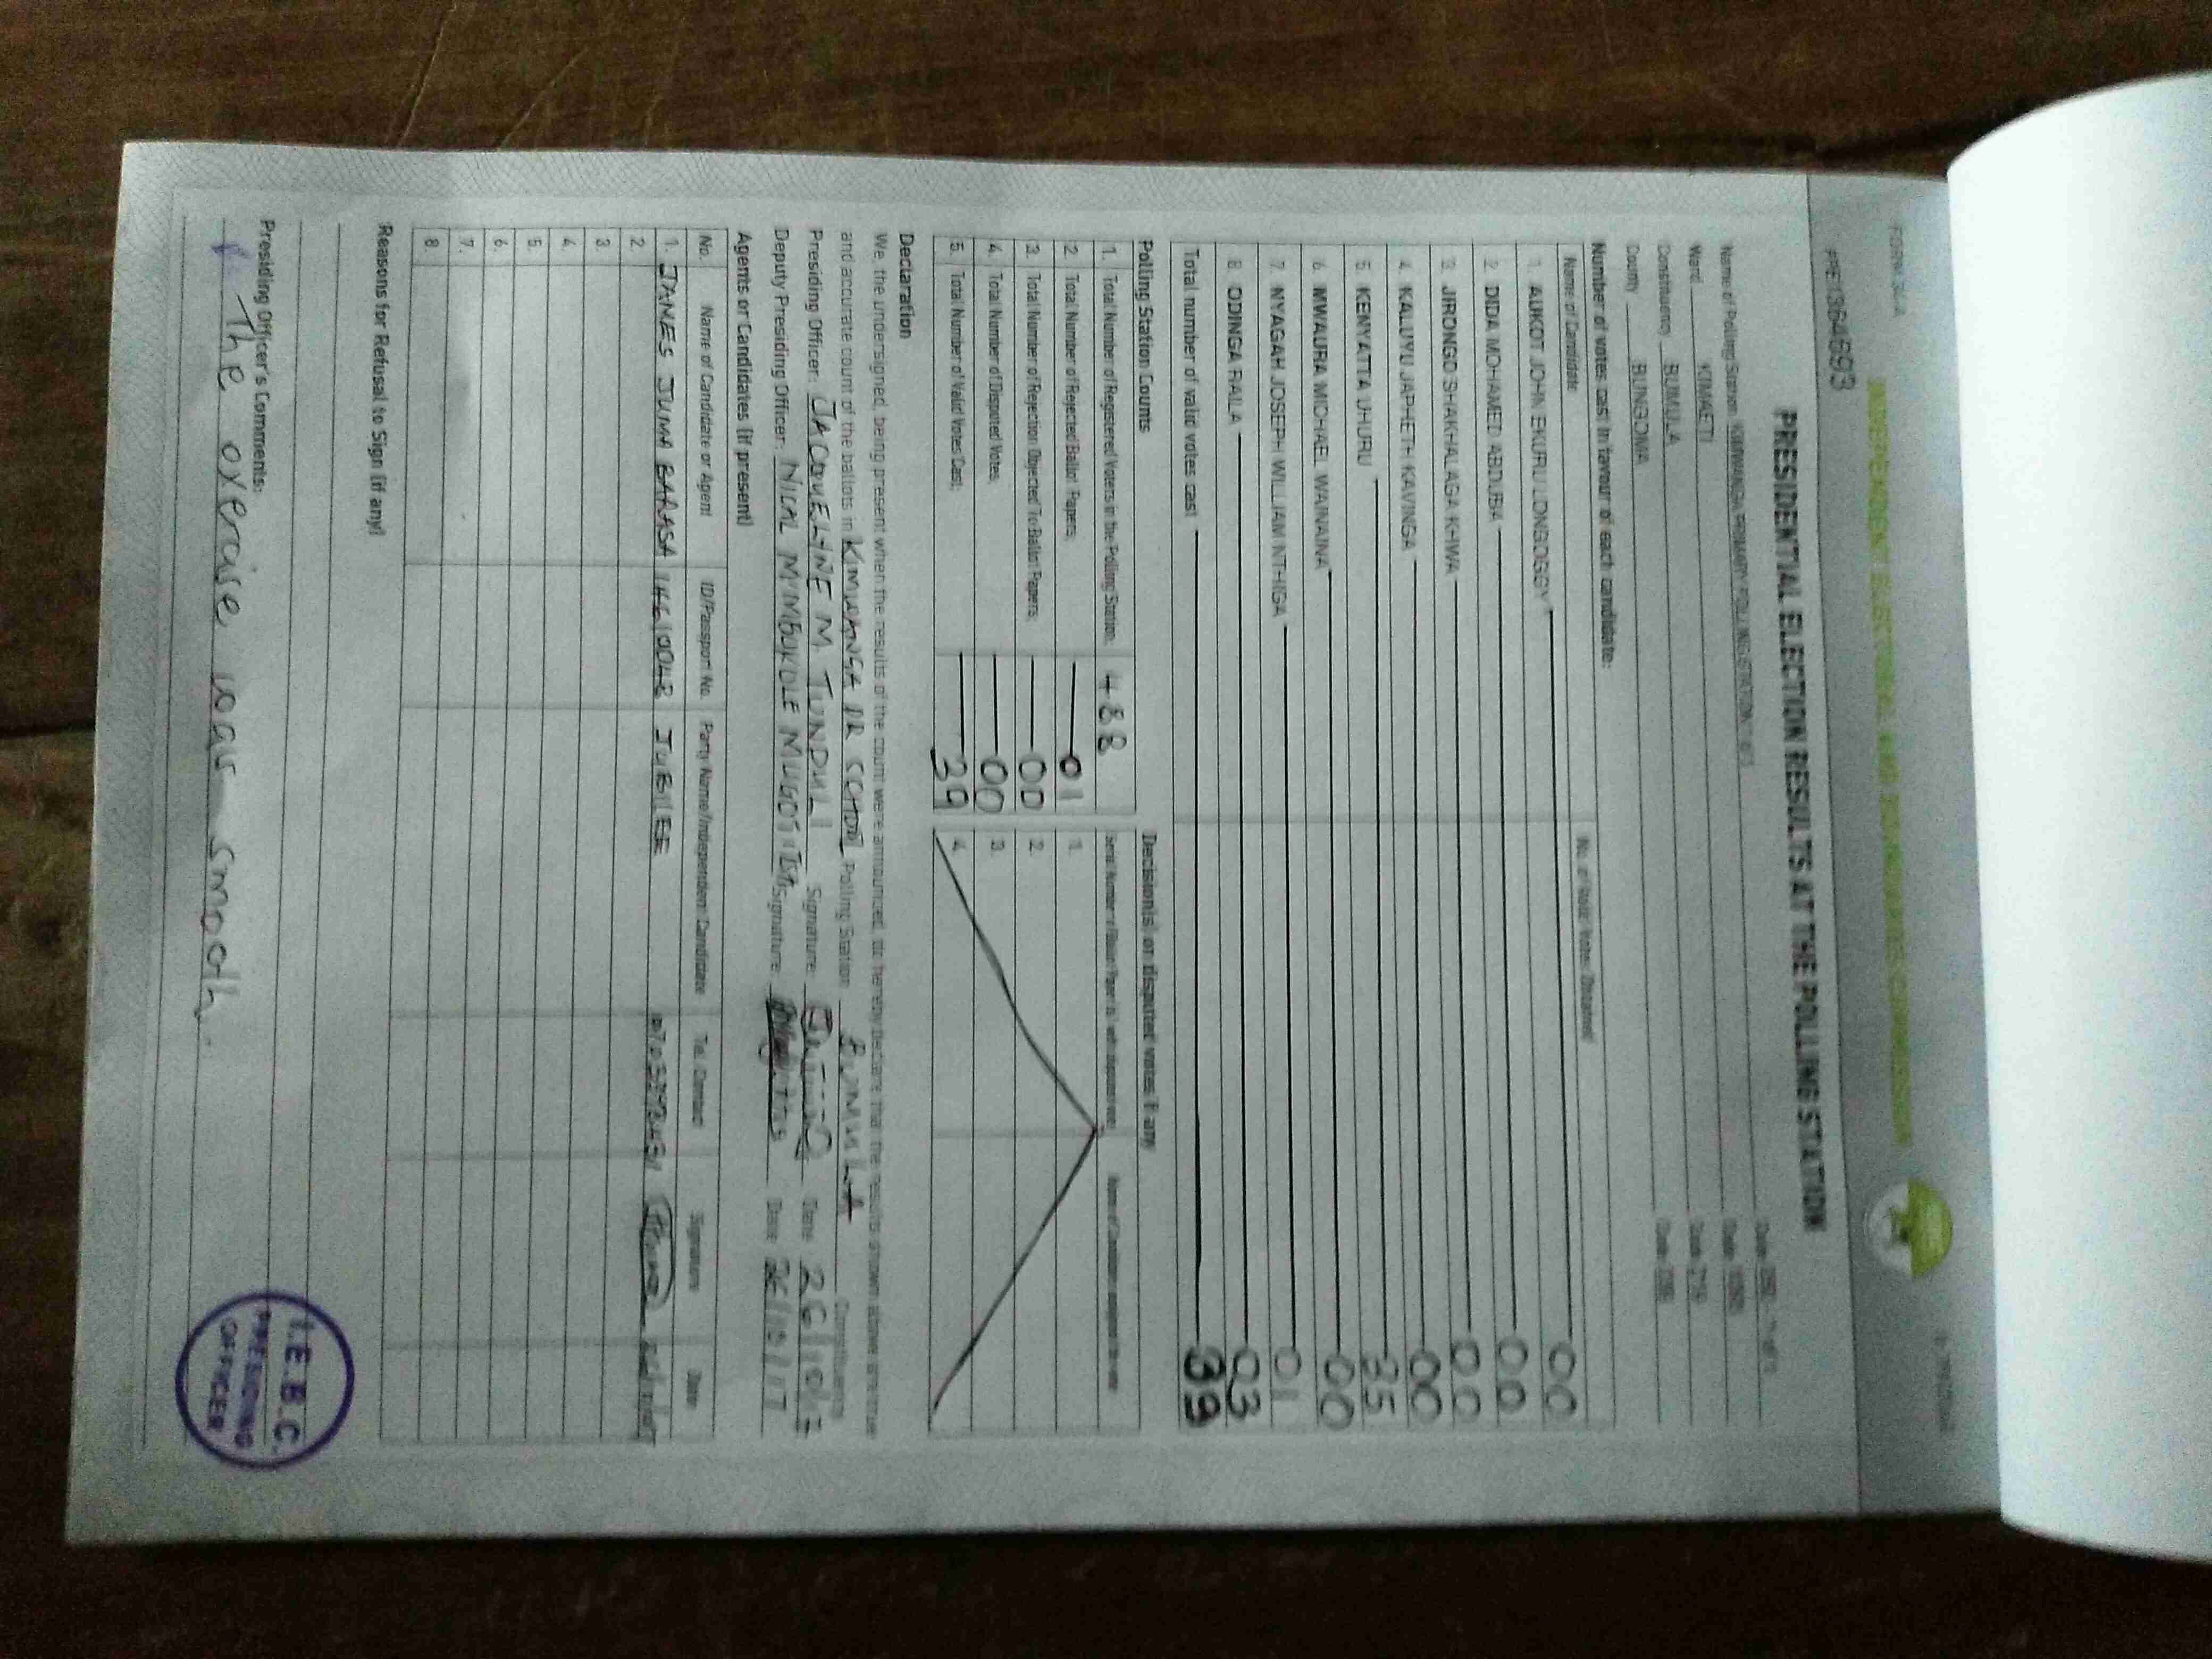 FORM 34A
INDEPENDENT ELECTORAL AND BOUNDARIES COMMISSION
PRE1364693
PRESIDENTIAL ELECTION RESULTS AT THE POLLING STATION
Name of Polling Station KIMWANGA PRIMARY POLLING STATION
Ward KIMAETI Code
Constituency BUMULA Code
County BUNGOMA Code
Number of votes cast in favour of each candidate:
Name of Candidate No. of Valid Votes Obtained
1. AUKOT JOHN EKURU LONGOGGY 00
2. DIDA MOHAMED ABDUBA 00
3. JIRONGO SHAKHALAGA KHWA 00
4. KALUYU JAPHETH KAVINGA 00
5. KENYATTA UHURU 35
6. MWAURA MICHAEL WAINAINA 00
7. NYAGAH JOSEPH WILLIAM NTHIGA 01
8. ODINGA RAILA 03
Total number of valid votes cast 39
Polling Station Counts Decision(s) on disputed votes if any
1. Total Number of Registered Voters in the Polling Station: 488
2. Total Number of Rejected Ballot Papers: 01 1.
3. Total Number of Rejection Objected To Ballot Papers: 00 2.
4. Total Number of Disputed Votes: 00 3.
5. Total Number of Valid Votes Cast: 39 4.
Declaration
We, the undersigned, being present when the results of the count were announced, do hereby declare that the results shown above are true
and accurate count of the ballots in KIMWANGA PR SCHOOL Polling Station BUMULA Constituency
Presiding Officer: JACQUELINE M. TUNDULI Signature Date 26/10/17
Deputy Presiding Officer: Signature Date 26/10/17
Agents or Candidates (if present)
No. Name of Candidate or Agent ID/Passport No. Party Name/Independent Candidate Tel. Contact Signature Date
1. JAMES JUMA BARASA JUBILEE
2.
3.
4.
5.
6.
7.
8.
Reasons for Refusal to Sign (if any)
Presiding Officer's Comments:
The exercise was smooth.
I.E.B.C.
PRESIDING
OFFICER